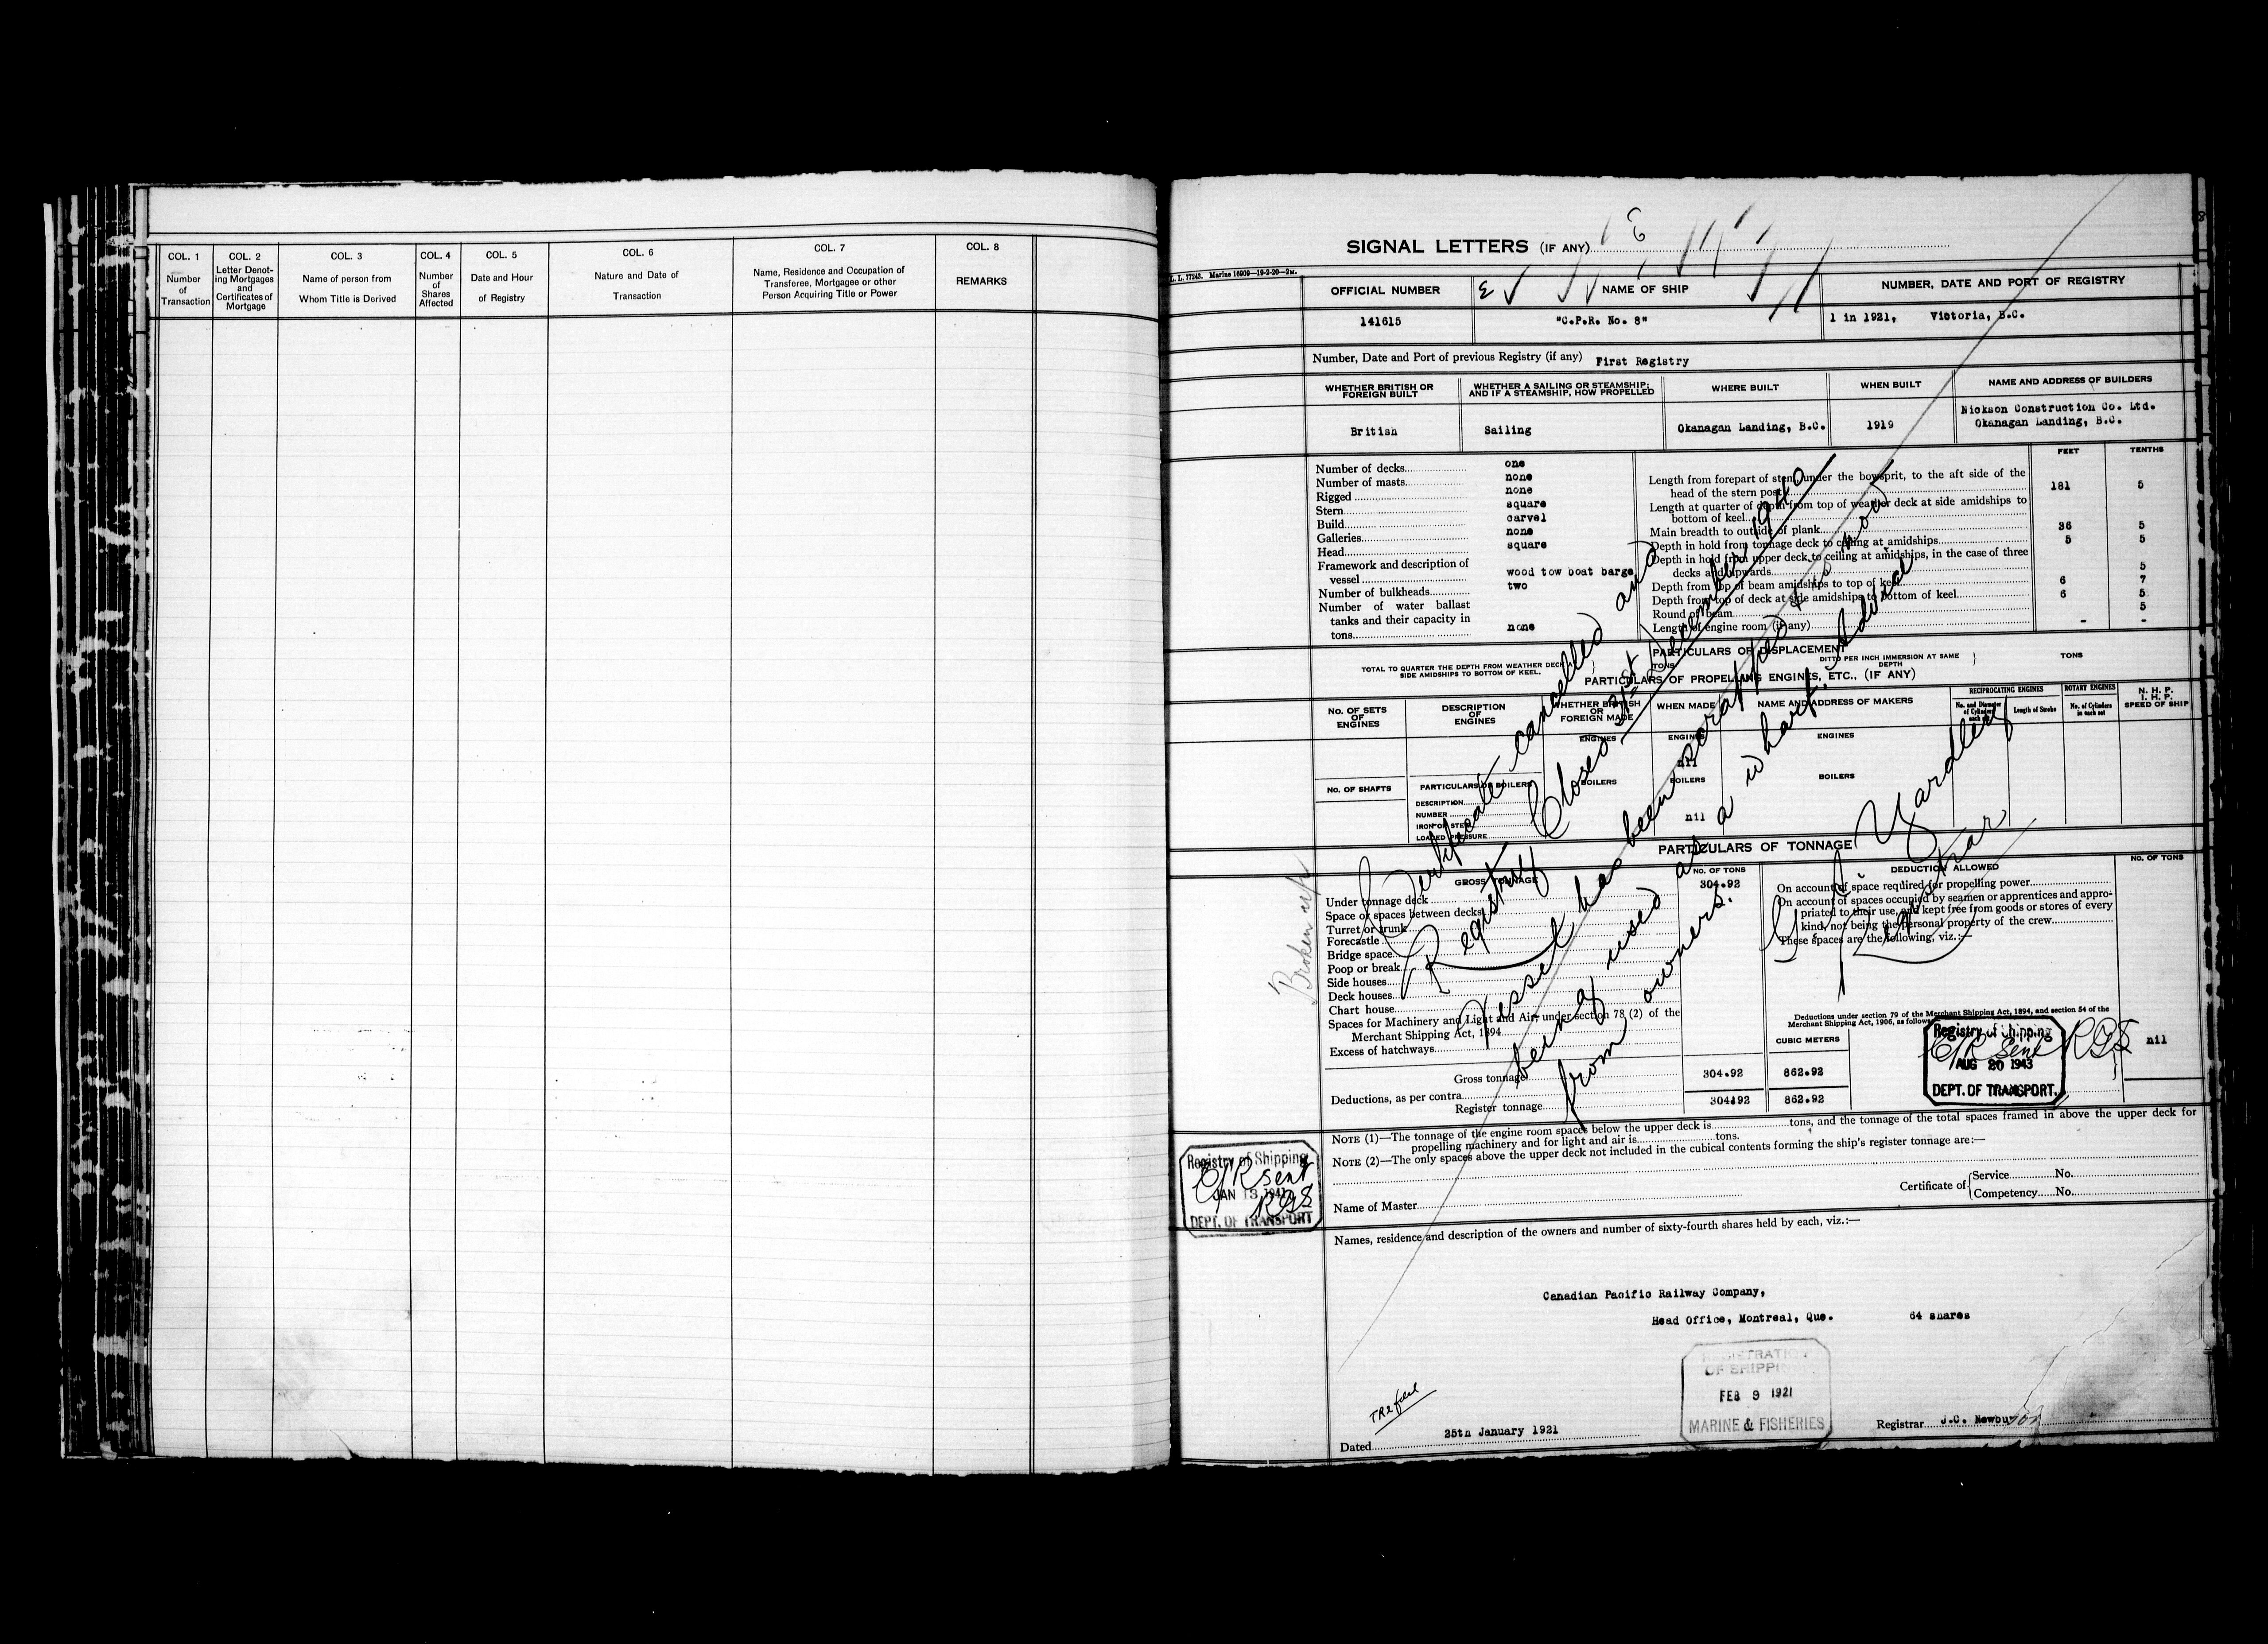 COL. 1
Number
of
Transaction
COL. 2
Letter Denot-
ing Mortgages
and
Certificates of
Mortgage
COL. 3
Name of person from
Whom Title is Derived
COL. 4
Number
of
Shares
Affected
COL. 5
Date and Hour
of Registry
COL. 6
Nature and Date of
Transaction
COL. 7
Name, Residence and Occupation of
Transferee, Mortgagee or other
Person Acquiring Title or Power
COL. 8
REMARKS
SIGNAL LETTERS (IF ANY)
L. L. 77243. Marine 16909—19-2-20—2M.
OFFICIAL NUMBER
NAME OF SHIP
NUMBER, DATE AND PORT OF REGISTRY
141615
"C.P.R. No. 8"
1 in 1921, Victoria, B.C.
Number, Date and Port of previous Registry (if any) First Registry
WHETHER BRITISH OR
FOREIGN BUILT
WHETHER A SAILING OR STEAMSHIP;
AND IF A STEAMSHIP, HOW PROPELLED
WHERE BUILT
WHEN BUILT
NAME AND ADDRESS OF BUILDERS
British
Sailing
Okanagan Landing, B.C.
1919
Nickson Construction Co. Ltd.
Okanagan Landing, B.C.
FEET TENTHS
Number of decks one
Number of masts none
Rigged none
Stern square
Build carvel
Galleries none
Head square
Framework and description of
vessel wood tow boat barge
Number of bulkheads two
Number of water ballast
tanks and their capacity in
tons none
Length from forepart of stem, under the bowsprit, to the aft side of the
head of the stern post 181 5
Length at quarter of depth from top of weather deck at side amidships to
bottom of keel
Main breadth to outside of plank 36 5
Depth in hold from tonnage deck to ceiling at amidships 5 5
Depth in hold from upper deck to ceiling at amidships, in the case of three
decks and upwards 5
Depth from top of beam amidships to top of keel 6 7
Depth from top of deck at side amidships to bottom of keel 6 5
Round of beam 5
Length of engine room (if any) - -
PARTICULARS OF DISPLACEMENT
TOTAL TO QUARTER THE DEPTH FROM WEATHER DECK AT
SIDE AMIDSHIPS TO BOTTOM OF KEEL.
TONS
DITTO PER INCH IMMERSION AT SAME
DEPTH
TONS
PARTICULARS OF PROPELLING ENGINES, ETC., (IF ANY)
NO. OF SETS
OF
ENGINES
DESCRIPTION
OF
ENGINES
WHETHER BRITISH
OR
FOREIGN MADE
WHEN MADE
NAME AND ADDRESS OF MAKERS
RECIPROCATING ENGINES
No. and Diameter
of Cylinders
each set
Length of Stroke
ROTARY ENGINES
No. of Cylinders
in each set
N. H. P.
I. H. P.
SPEED OF SHIP
ENGINES
ENGINES
ENGINES
nil
NO. OF SHAFTS
PARTICULARS OF BOILERS
BOILERS
BOILERS
BOILERS
DESCRIPTION
NUMBER
IRON OR STEEL
LOADED PRESSURE
nil
PARTICULARS OF TONNAGE
GROSS TONNAGE
NO. OF TONS
DEDUCTION ALLOWED
NO. OF TONS
Under tonnage deck 304.92
Space or spaces between decks
Turret or trunk
Forecastle
Bridge space
Poop or break
Side houses
Deck houses
Chart house
Spaces for Machinery and Light and Air, under section 78 (2) of the
Merchant Shipping Act, 1894
Excess of hatchways
On account of space required for propelling power
On account of spaces occupied by seamen or apprentices and appro-
priated to their use, and kept free from goods or stores of every
kind, not being the personal property of the crew
These spaces are the following, viz.:—
Deductions under section 79 of the Merchant Shipping Act, 1894, and section 54 of the
Merchant Shipping Act, 1906, as follows
CUBIC METERS
nil
Gross tonnage 304.92 862.92
Deductions, as per contra
Register tonnage 304.92 862.92
Registry of Shipping
C/R Sent RGS
AUG 20 1943
DEPT. OF TRANSPORT.
Certificate cancelled and
Registry Closed 31st December 1940
Vessel has been scrapped & is now
being used as a wharf. Advice
from owners.
Yardley
Registrar
Broken up
NOTE (1)—The tonnage of the engine room spaces below the upper deck is tons, and the tonnage of the total spaces framed in above the upper deck for
propelling machinery and for light and air is tons.
NOTE (2)—The only spaces above the upper deck not included in the cubical contents forming the ship's register tonnage are:—
Registry of Shipping
C/R sent
JAN 13 1941
RGS
DEPT. OF TRANSPORT
Name of Master
Certificate of
Service No.
Competency No.
Names, residence and description of the owners and number of sixty-fourth shares held by each, viz.:—
Canadian Pacific Railway Company,
Head Office, Montreal, Que. 64 shares
REGISTRATION
OF SHIPPING
FEB 9 1921
MARINE & FISHERIES
Dated 25th January 1921
Registrar J.C. Newbury